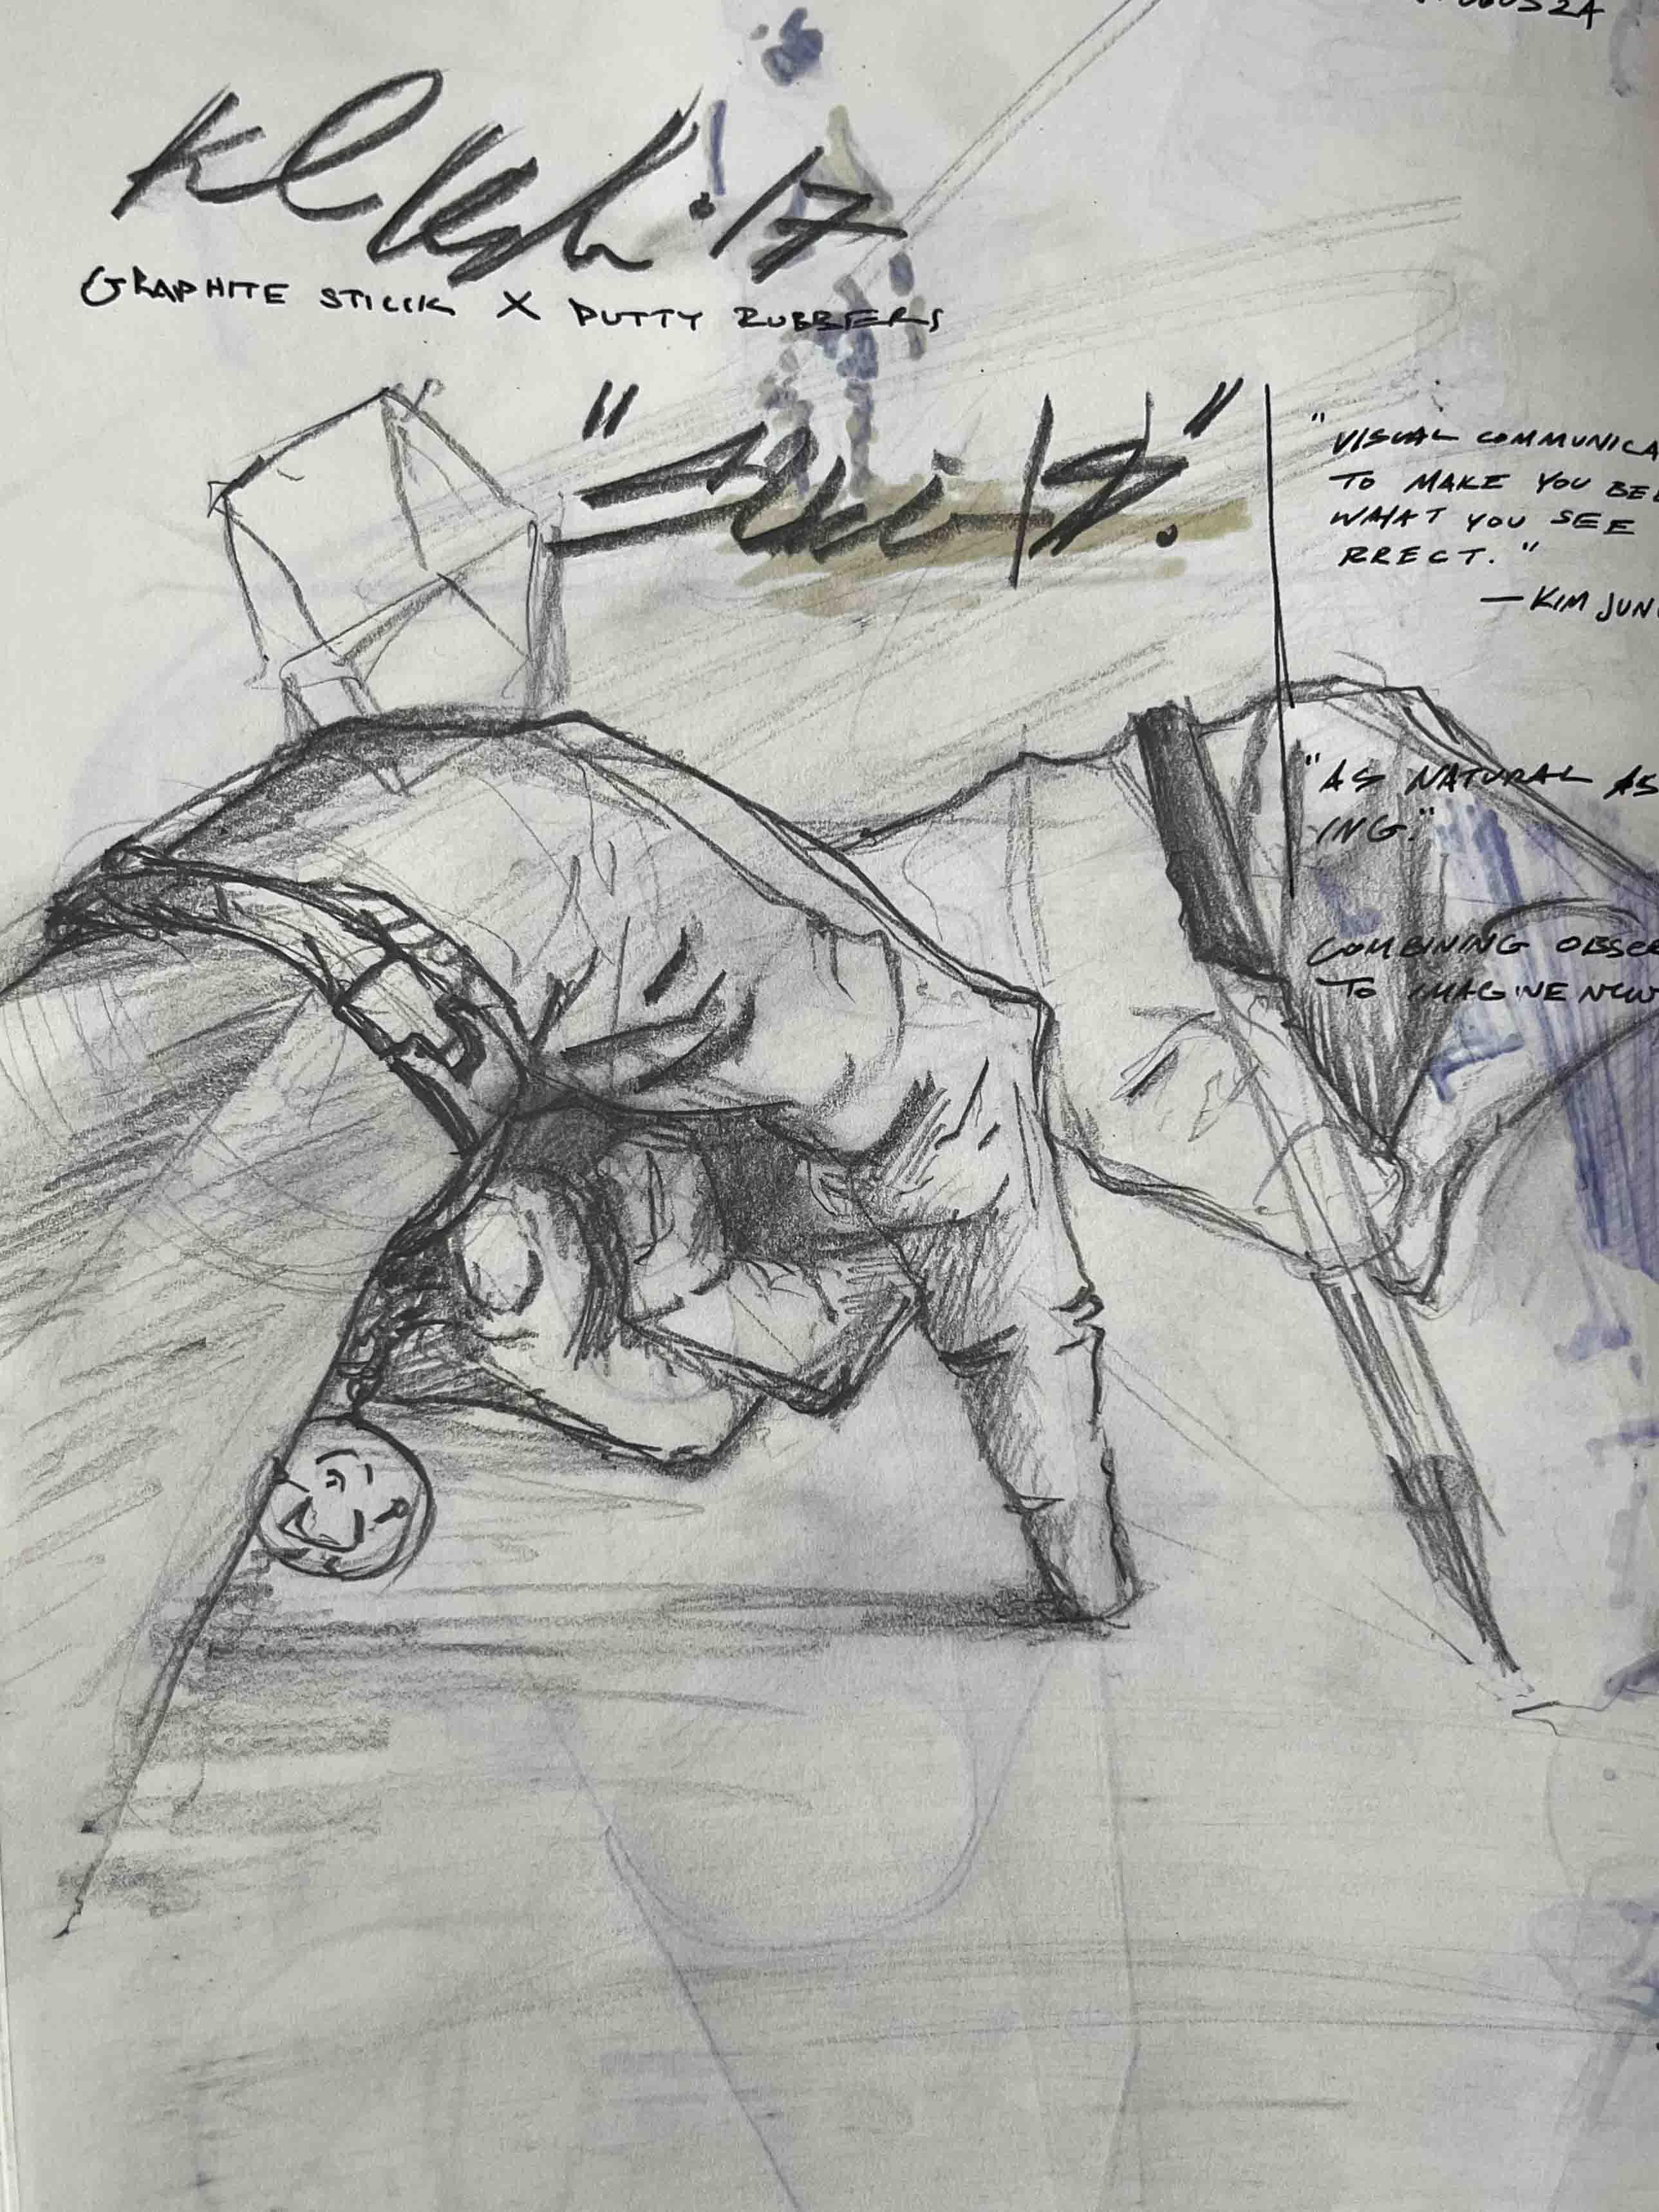 17
GRAPHITE STICK X PUTTY RUBBERS
"VISUAL COMMUNICA
TO MAKE YOU BEL
WHAT YOU SEE
RRECT."
— KIM JUN
"AS NATURAL AS
ING."
COMBINING OBSER
TO IMAGINE NEW